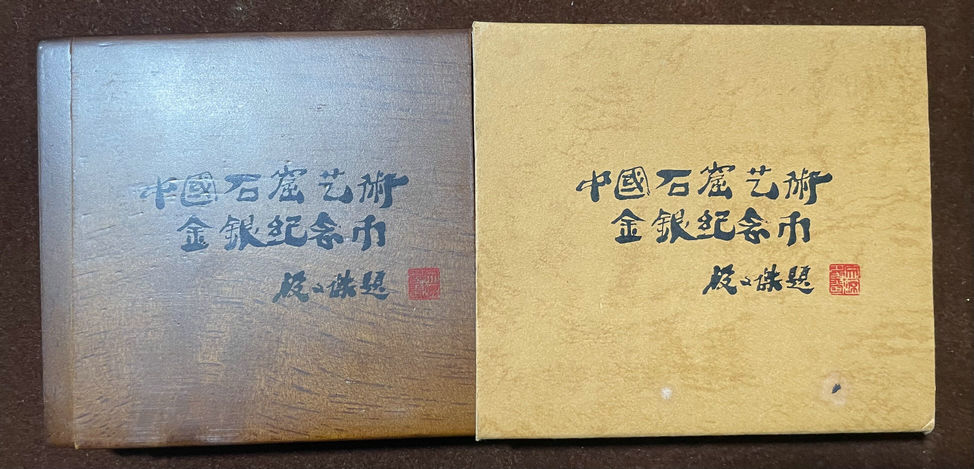 中國石窟艺術
金銀纪念币
段文傑题
中國石窟艺術
金銀纪念币
段文傑题